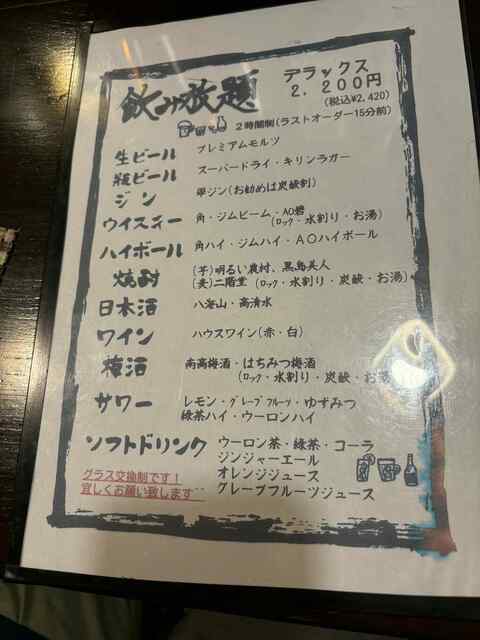 飲み放題
デラックス
2,200円
(税込¥2,420)
2時間制(ラストオーダー15分前)
生ビール プレミアムモルツ
瓶ビール スーパードライ・キリンラガー
ジン 翠ジン(お勧めは炭酸割)
ウイスキー 角・ジムビーム・AO碧
(ロック・水割り・お湯)
ハイボール 角ハイ・ジムハイ・AOハイボール
焼酎 (芋)明るい農村、黒島美人
(麦)二階堂 (ロック・水割り・炭酸・お湯)
日本酒 八海山・高清水
ワイン ハウスワイン(赤・白)
梅酒 南高梅酒・はちみつ梅酒
(ロック・水割り・炭酸・お湯
サワー レモン・グレープフルーツ・ゆずみつ
緑茶ハイ・ウーロンハイ
ソフトドリンク ウーロン茶・緑茶・コーラ
ジンジャーエール
オレンジジュース
グレープフルーツジュース
グラス交換制です!
宜しくお願い致します